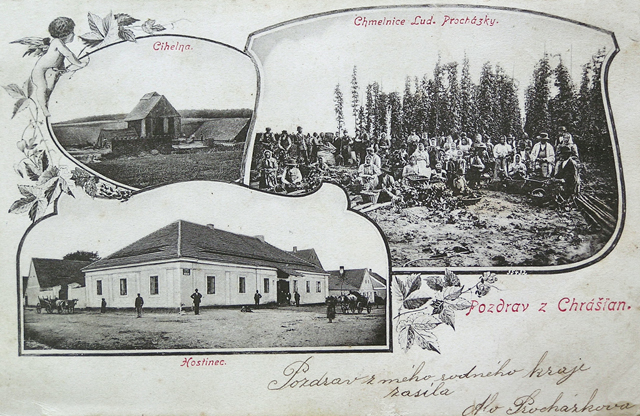 Cihelna.
Chmelnice Lud. Procházky.
Hostinec.
Pozdrav z Chrášťan.
Pozdrav z mého rodného kraje
zasílá
Procházkova